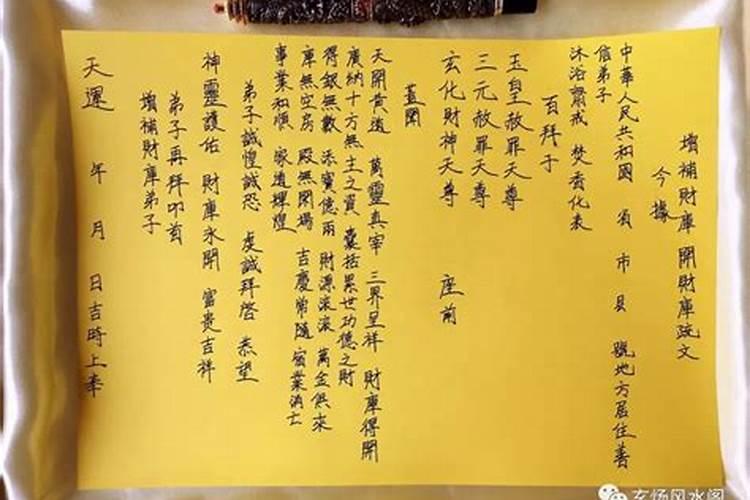 增補財庫 開財庫疏文
今據
中華人民共和國 省 市 縣 號地方居住善
信弟子
沐浴齋戒 焚香化表
百拜于
玉皇赦罪天尊
三元赦罪天尊
玄化財神天尊 座前
蓋聞
天開黃道 萬靈真宰 三界呈祥 財庫得開
廣納十方無主之資 囊括累世功德之財
得銀無數 添寶億兩 財源滾滾 萬金俱來
庫無空房 殿無閑場 吉慶常隨 窮業消亡
事業和順 家道輝煌
弟子誠惶誠恐 虔誠拜啓 恭望
神靈護佑 財庫永開 富貴吉祥
弟子再拜叩首
增補財庫弟子
天運 年 月 日吉時上奉
玄扬风水阁